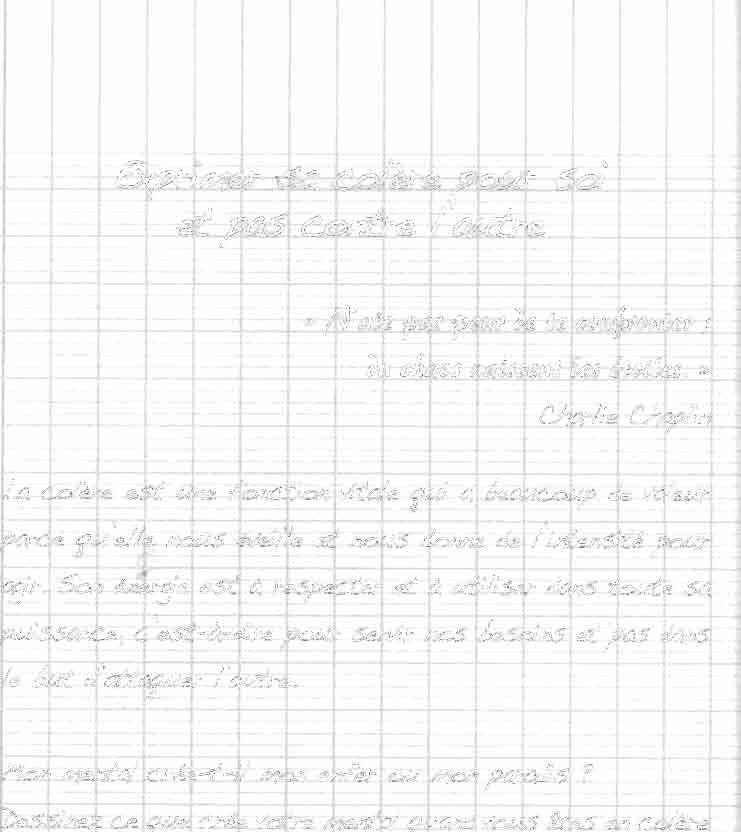 Exprimer sa colère pour soi
et pas contre l'autre
« N'aie pas peur de te confronter :
du chaos naissent les étoiles. »
Charlie Chaplin
La colère est une fonction vitale qui a beaucoup de valeur
parce qu'elle nous éveille et nous donne de l'intensité pour
agir. Son énergie est à respecter et à utiliser dans toute sa
puissance, c'est-à-dire pour servir nos besoins et pas dans
le but d'attaquer l'autre.
Mon mental crée-t-il mon enfer ou mon paradis ?
Dessinez ce que crée votre mental quand vous êtes en colère